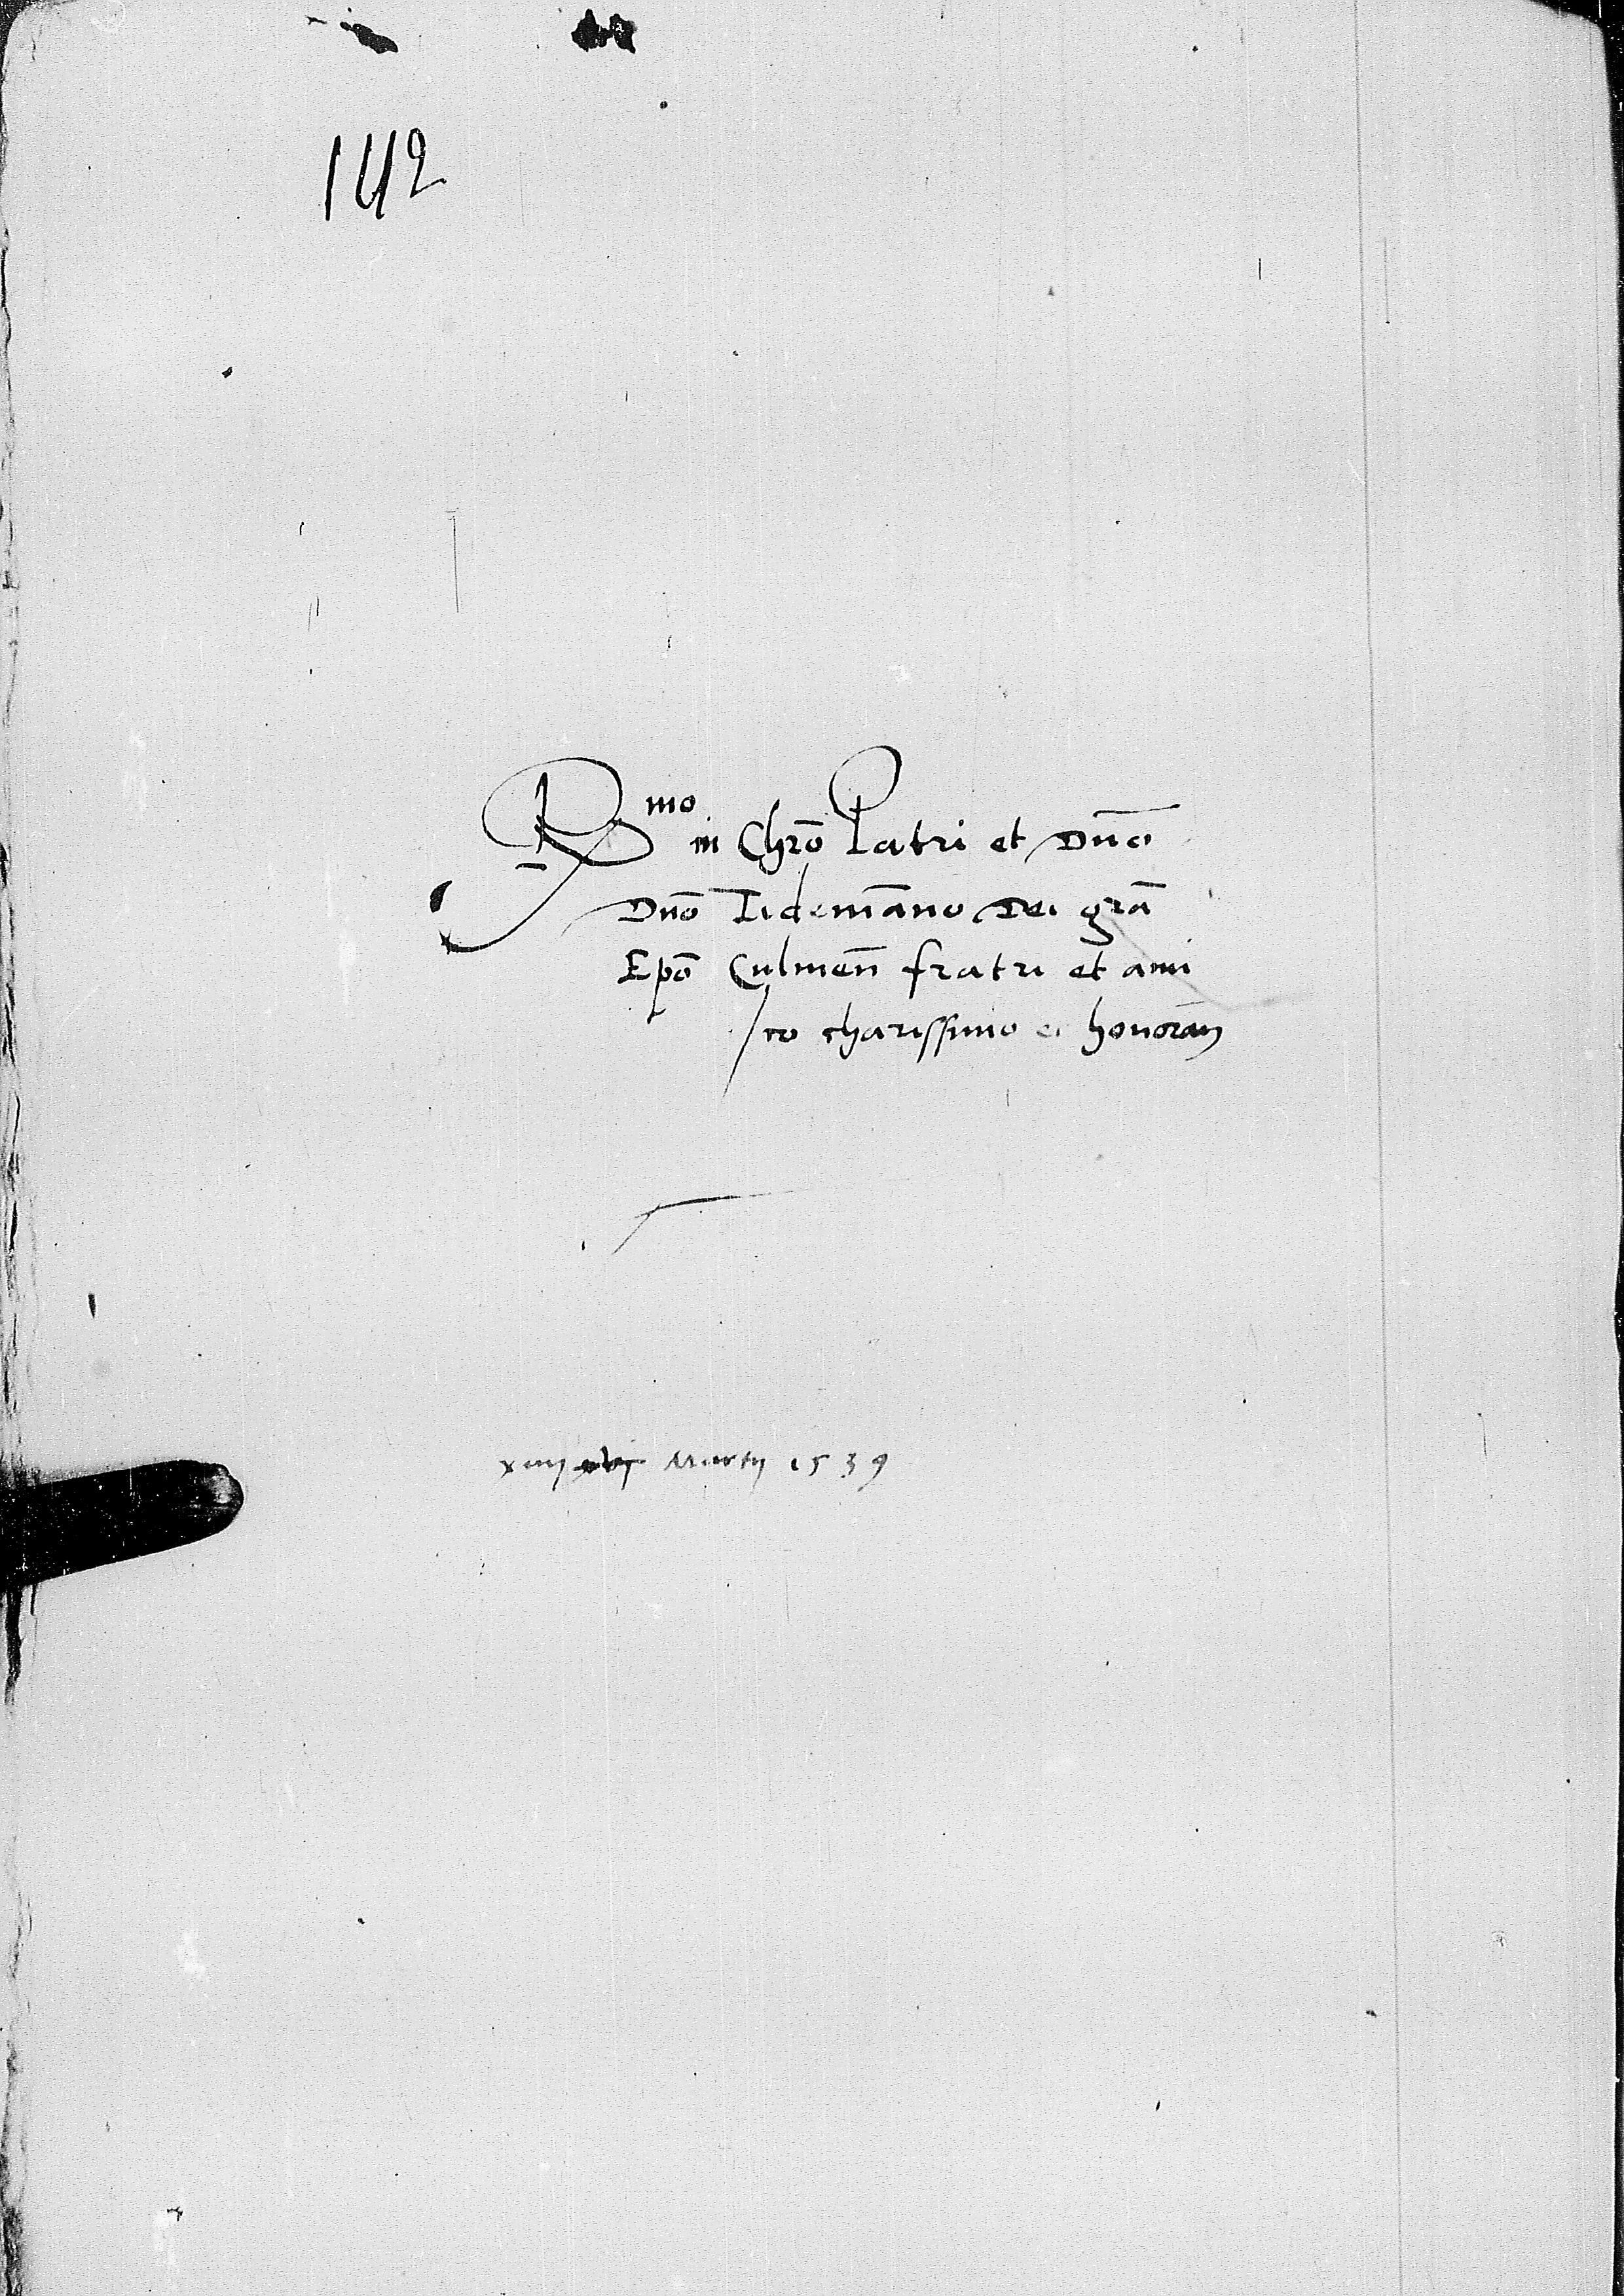 142
R mo in Chrō Patri et Dnō
Dnō Tidemāno Dei grā
Epō Culmen̄ fratri et ami
co charissimo et honorān
xiiij Martij 1539